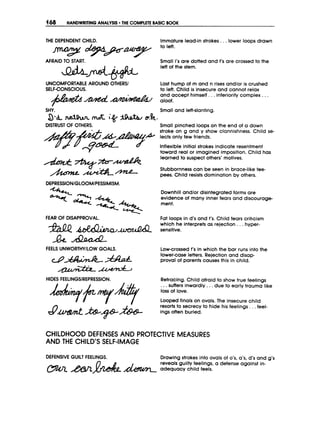 168 HANDWRITING ANALYSIS • THE COMPLETE BASIC BOOK
THE DEPENDENT CHILD.
many dogs are
Immature lead-in strokes . . . lower loops drawn
to left.
AFRAID TO START.
Small i's are dotted and t's are crossed to the
left of the stem.
UNCOMFORTABLE AROUND OTHERS/
SELF-CONSCIOUS.
plants and animals
Last hump of m and n rises and/or is crushed
to left. Child is insecure and cannot relax
and accept himself . . . inferiority complex . . .
aloof.
SHY.
Small and left-slanting.
DISTRUST OF OTHERS.
safty first is always
good
Small pinched loops on the end of a down
stroke on g and y show clannishness. Child se-
lects only few friends.
Inflexible initial strokes indicate resentment
toward real or imagined imposition. Child has
learned to suspect others' motives.
dont try to walk
home with me
Stubbornness can be seen in brace-like tee-
pees. Child resists domination by others.
DEPRESSION/GLOOM/PESSIMISM.
Downhill and/or disintegrated forms are
evidence of many inner fears and discourage-
ment.
FEAR OF DISAPPROVAL.
Fat loops in d's and t's. Child fears criticism
which he interprets as rejection . . . hyper-
sensitive.
FEELS UNWORTHY/LOW GOALS.
I think that
Low-crossed t's in which the bar runs into the
lower-case letters. Rejection and disap-
proval of parents causes this in child.
HIDES FEELINGS/REPRESSION.
looking for my hilly
Retracing. Child afraid to show true feelings
. . . suffers inwardly . . . due to early trauma like
loss of love.
I want to go too
Looped finals on ovals. The insecure child
resorts to secrecy to hide his feelings . . . feel-
ings often buried.
CHILDHOOD DEFENSES AND PROTECTIVE MEASURES
AND THE CHILD'S SELF-IMAGE
DEFENSIVE GUILT FEELINGS.
our car broke down
Drawing strokes into ovals of o's, a's, d's and g's
reveals guilty feelings, a defense against in-
adequacy child feels.